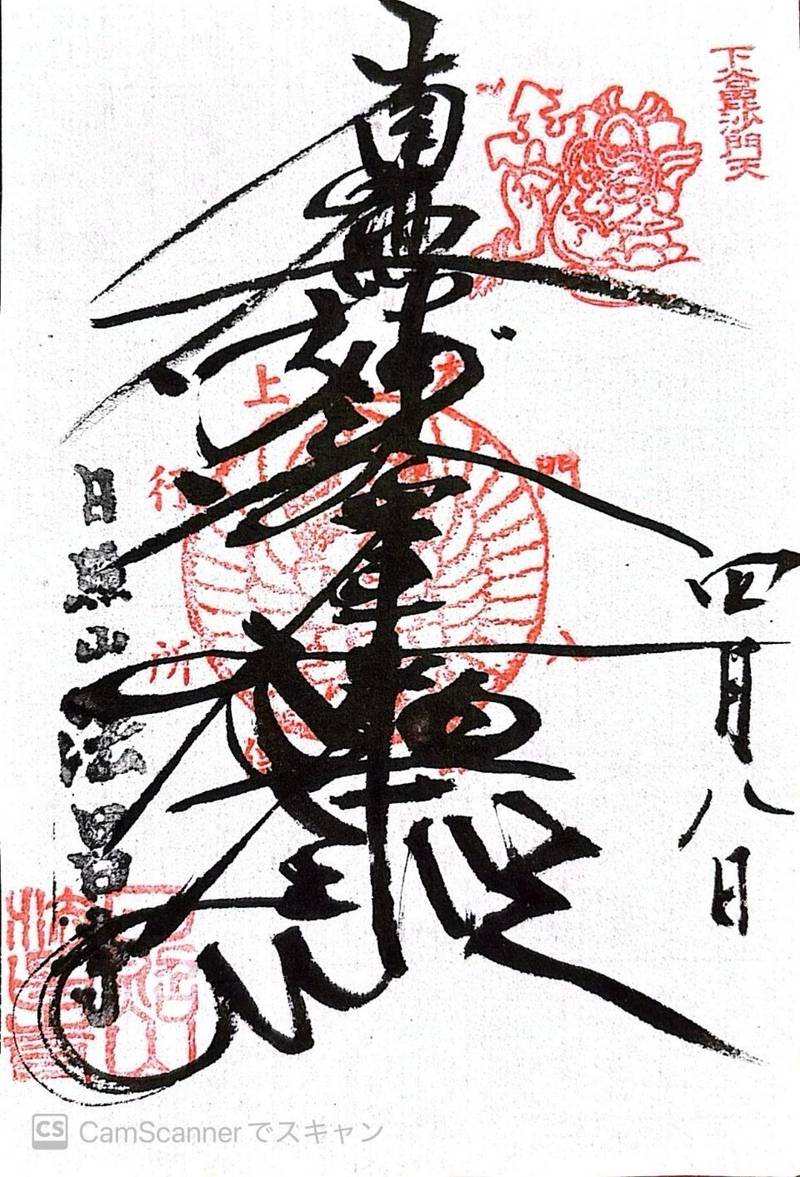 下谷毘沙門天
四月八日
南無妙法蓮華経
上行所
門八
日照山法昌寺
CS CamScannerでスキャン